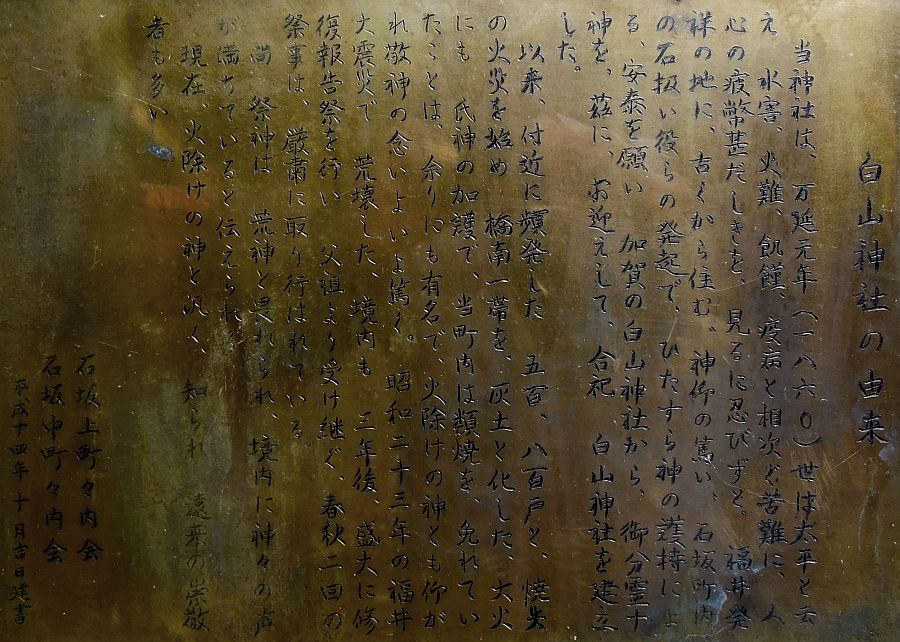 白山神社の由来
当神社は、万延元年(一八六〇)世は太平と云
え 水害、火難、飢饉、疫病と相次ぐ苦難に、人
心の疲幣甚だしきを、見るに忍びずと。福井発
祥の地に、古くから住む。神仰の篤い、石坂町内
の石扱い役らの発起で、ひたすら神の護持によ
る、安泰を願い 加賀の白山神社から、御分霊十
神を、茲に、お迎えして、合祀 白山神社を建立
した。
以来、付近に頻発した 五百、八百戸と、焼失
の火災を始め 橋南一帯を、灰土と化した、大火
にも 氏神の加護で、当町内は類焼を、免れてい
たことは、余りにも有名で、火除けの神とも仰が
れ敬神の念いよいよ篤く。昭和二十三年の福井
大震災で 荒壊した、境内も 三年後、盛大に修
復報告祭を行い 父祖より受け継ぐ、春秋二回の
祭事は、厳粛に取り行はれている。
尚 祭神は 荒神と畏れられ、境内に神々の声
が満ちていると伝えられ
現在、火除けの神と汎く、知られ 遠来の崇敬
者も多い
石坂上町々内会
石坂中町々内会
平成十四年十月吉日建書